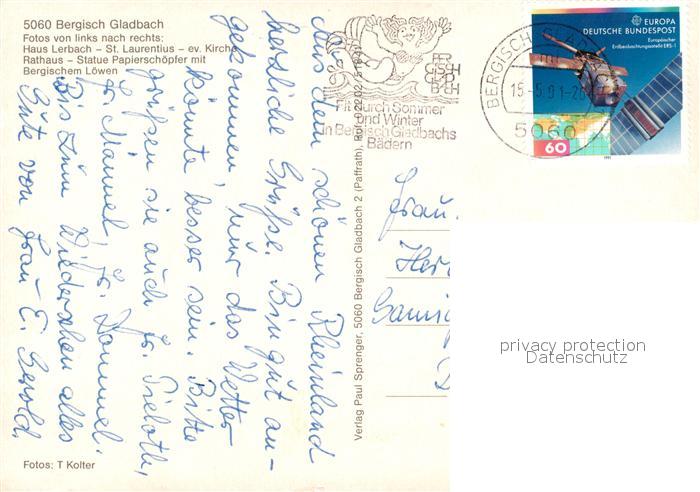 5060 Bergisch Gladbach
Fotos von links nach rechts:
Haus Lerbach – St. Laurentius – ev. Kirche
Rathaus – Statue Papierschöpfer mit
Bergischem Löwen
Aus dem schönen Rheinland
herzliche Grüße. Bin gut an-
gekommen, nur das Wetter
könnte besser sein. Bitte
grüßen sie auch Fr.
Fr. Männel, Fr. Dommel.
Bis zum Wiedersehen alles
Gute von Frau E. Gerold.
Fotos: T Kolter
Verlag Paul Sprenger, 5060 Bergisch Gladbach 2 (Paffrath), Ruf 0 22 02 / 5
BER
GISCH
GLAD
BACH
Fit durch Sommer
und Winter
in Bergisch Gladbachs
Bädern
BERGISCH GLADBACH
15.-5.91-20
5060
EUROPA
DEUTSCHE BUNDESPOST
Europäischer
Erdbeobachtungssatellit ERS-1
60
1991
Frau
privacy protection
Datenschutz